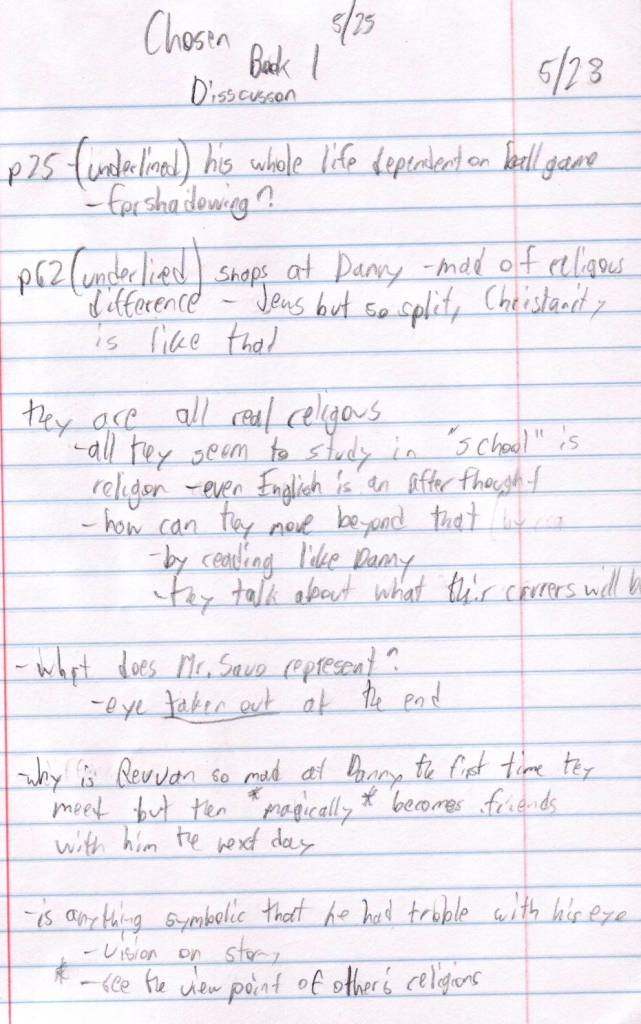 Chosen 5/25
Book 1 5/23
Disscusson
p25 - (underlined) his whole life dependent on ball game
- forshadowing?
p62 (underlied) snaps at Danny - mad of religous
difference - Jews but so split, Christanity
is like that
they are all real religous
- all they seem to study in "school" is
religon - even English is an after thought
- how can they move beyond that
- by reading like Danny
- they talk about what thir carrers will b
- what does Mr. Savo represent?
- eye taken out at the end
- why is Revvan so mad at Danny the first time they
meet but then *magically* becomes friends
with him the next day
- is anything symbolic that he had trobble with his eye
- vision on story
* - see the view point of other's religions